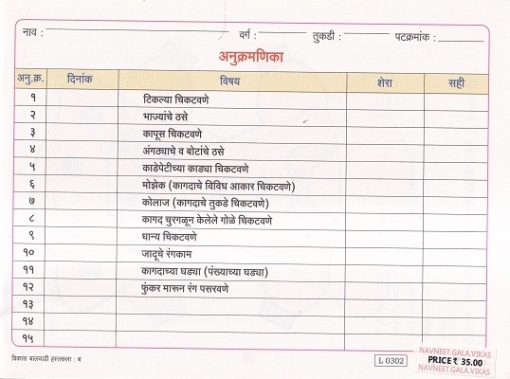 नाव : वर्ग : तुकडी : पटक्रमांक :
अनुक्रमणिका
अनु.क्र. दिनांक विषय शेरा सही
१ टिकल्या चिकटवणे
२ भाज्यांचे ठसे
३ कापूस चिकटवणे
४ अंगठ्याचे व बोटांचे ठसे
५ काडेपेटीच्या काड्या चिकटवणे
६ मोझेक (कागदाचे विविध आकार चिकटवणे)
७ कोलाज (कागदाचे तुकडे चिकटवणे)
८ कागद चुरगळून केलेले गोळे चिकटवणे
९ धान्य चिकटवणे
१० जादूचे रंगकाम
११ कागदाच्या घड्या (पंख्याच्या घड्या)
१२ फुंकर मारून रंग पसरवणे
१३
१४
१५
विकास बालवाडी हस्तकला : ब L 0302
NAVNEET.GALA.VIKAS
PRICE ₹ 35.00
NAVNEET.GALA.VIKAS